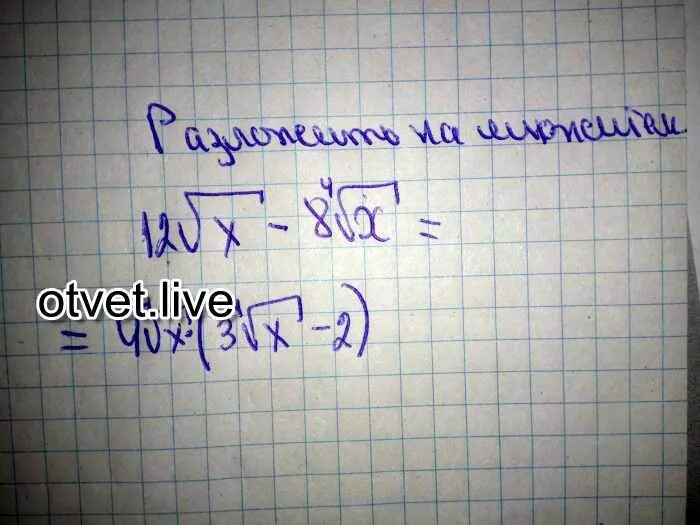 Разложить на множители
12√x - 8⁴√x =
otvet.live
= 4⁴√x · (3⁴√x - 2)